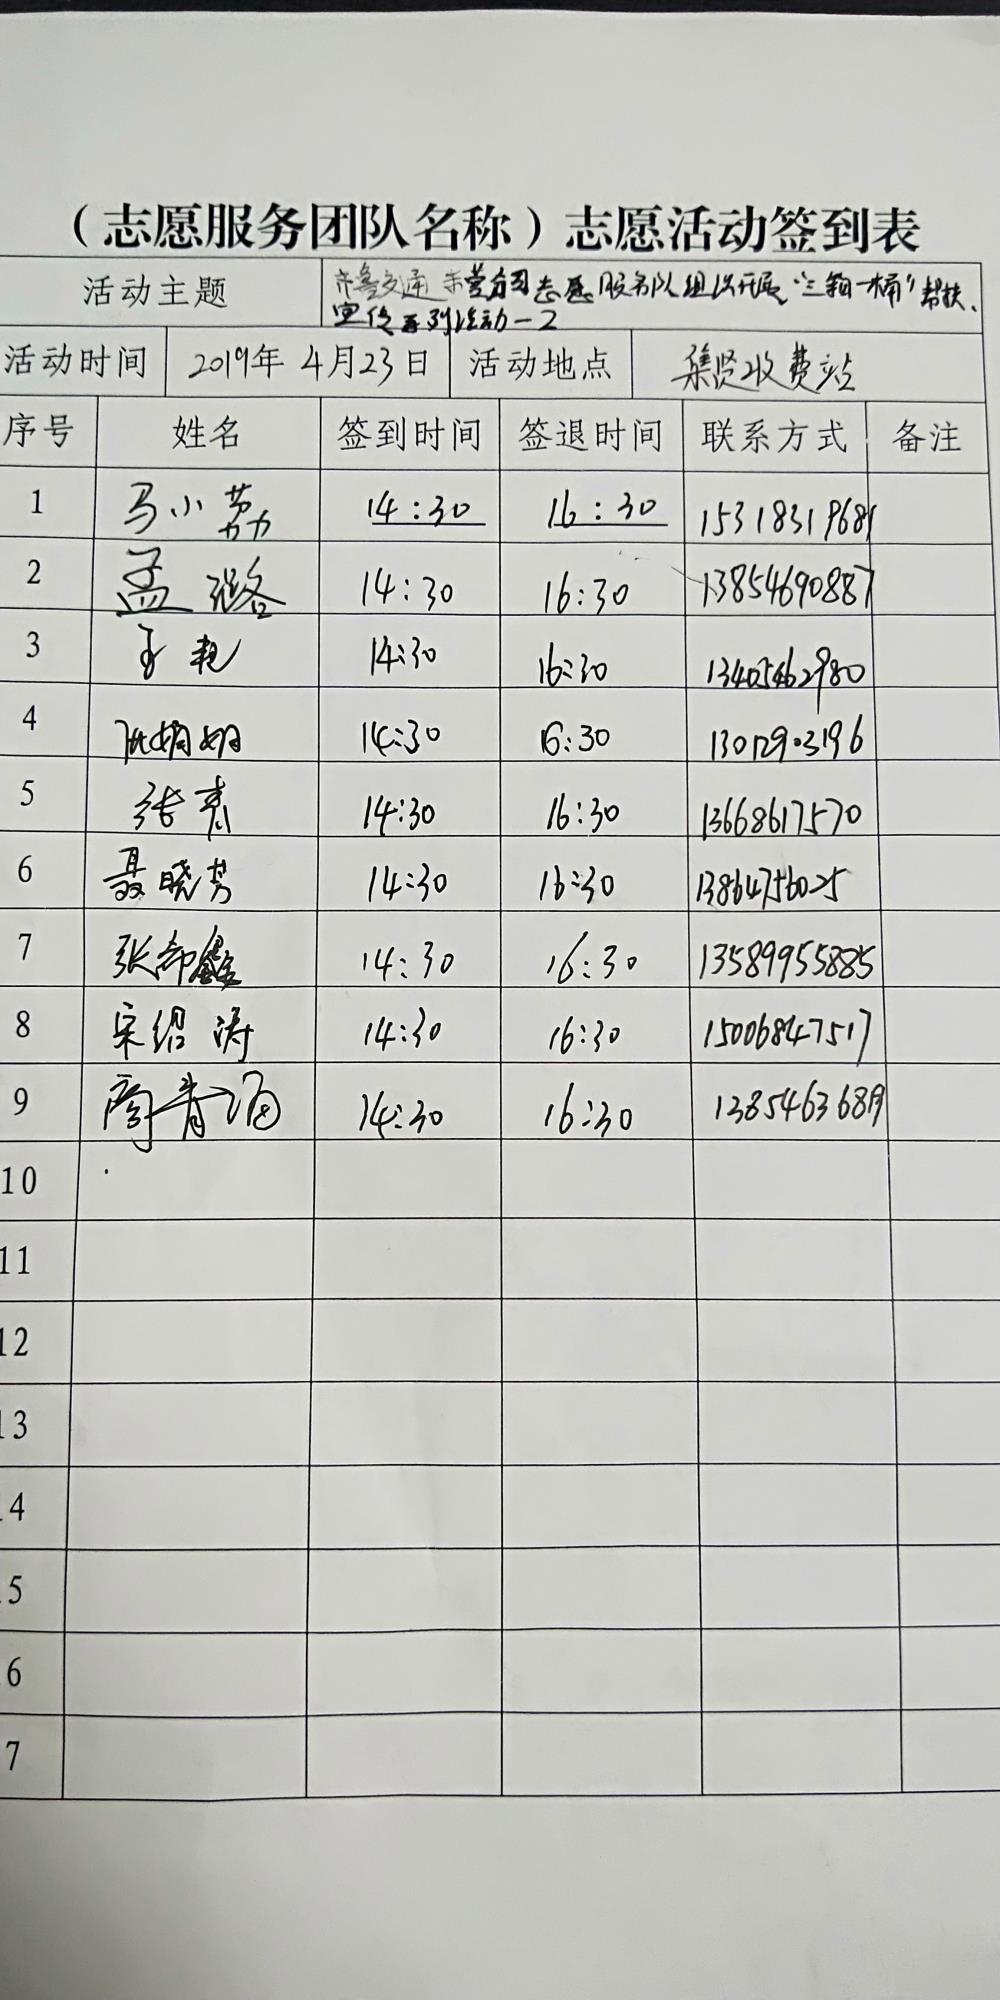 （志愿服务团队名称）志愿活动签到表
活动主题 齐鲁交通东营分公司志愿服务队组织开展"三箱一桶"帮扶、
宣传系列活动一2
活动时间 2019年4月23日 活动地点 集贤收费站
序号 姓名 签到时间 签退时间 联系方式 备注
1 马小 14:30 16:30 1531831968
2 孟璐 14:30 16:30 13854690887
3 王艳 14:30 16:30 13405462980
4 14:30 16:30 13012903196
5 张青 14:30 16:30 13668617570
6 聂晓梦 14:30 16:30 13864756025
7 张 鑫 14:30 16:30 13589955885
8 宋绍涛 14:30 16:30 15006847517
9 14:30 16:30 138546368
10
11
12
13
4
5
6
7